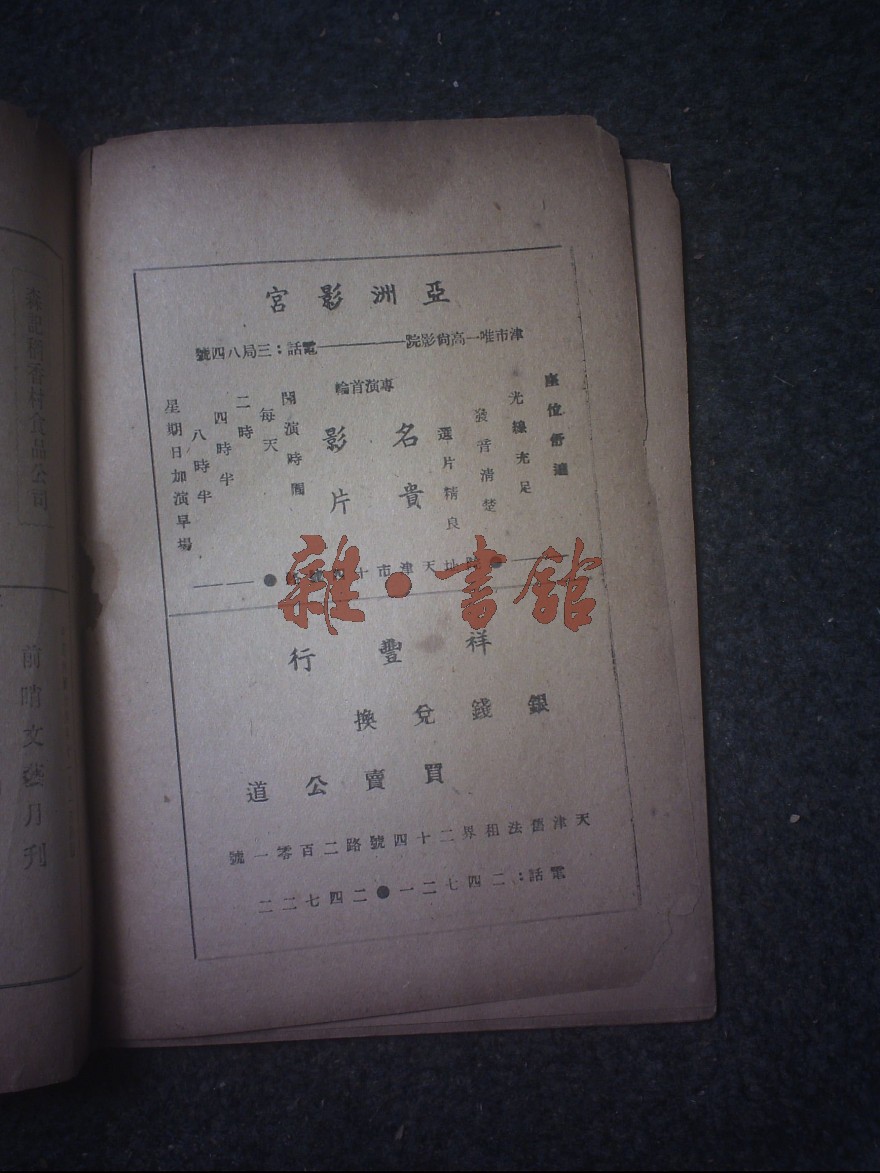 亞洲影宮
津市唯一高尙影院——電話：三局八四號
座位舒適
光線充足
發音淸楚
選片精良
專演首輪
名貴
影片
開演時間
每天
二時
四時半
八時半
星期日加演早場
天津市十
祥豐行
銀錢兌換
買賣公道
天津舊法租界二十四號路二百零一號
電話：二四七二一●二四七二二
雜·書館
森記稻香村食品公司
前哨文藝月刊